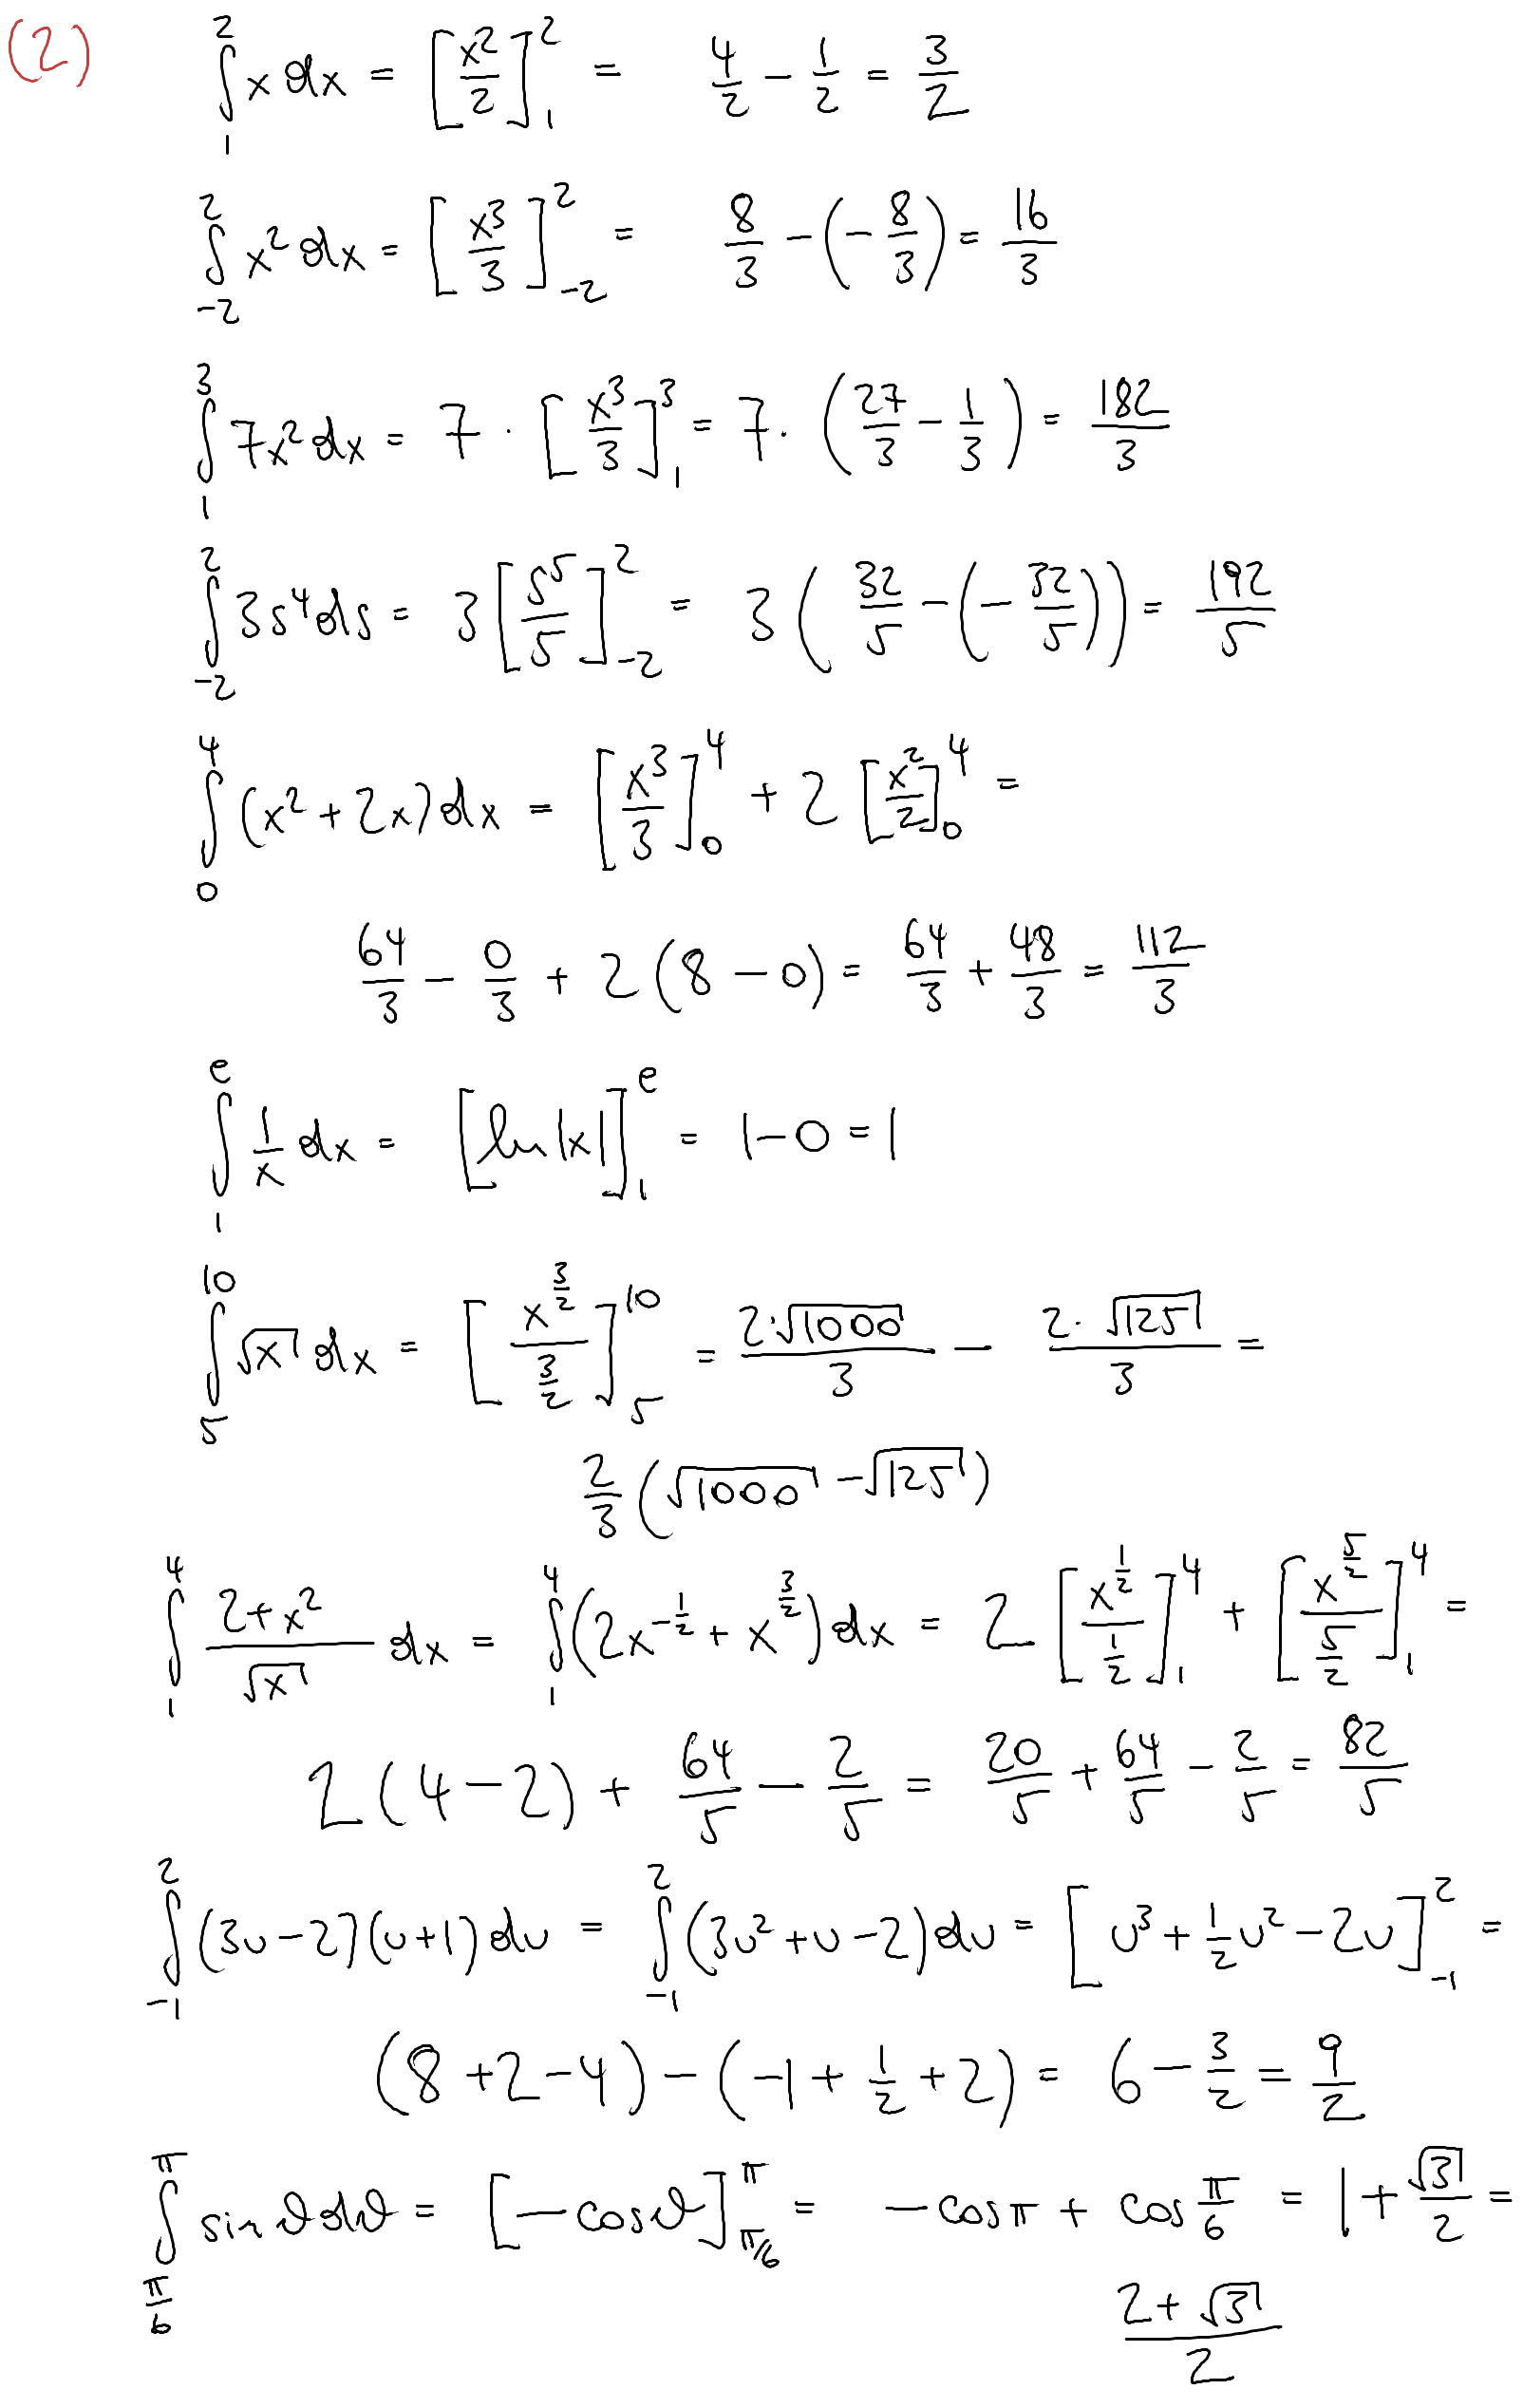 (2) ∫₁² x dx = [x²/2]₁² = 4/2 − 1/2 = 3/2
∫₋₂² x² dx = [x³/3]₋₂² = 8/3 − (−8/3) = 16/3
∫₁³ 7x² dx = 7 · [x³/3]₁³ = 7 · (27/3 − 1/3) = 182/3
∫₋₂² 3s⁴ ds = 3 [s⁵/5]₋₂² = 3 (32/5 − (−32/5)) = 192/5
∫₀⁴ (x² + 2x) dx = [x³/3]₀⁴ + 2 [x²/2]₀⁴ =
64/3 − 0/3 + 2 (8 − 0) = 64/3 + 48/3 = 112/3
∫₁ᵉ 1/x dx = [ln |x|]₁ᵉ = 1 − 0 = 1
∫₅¹⁰ √x dx = [x^(3/2)/(3/2)]₅¹⁰ = 2·√1000/3 − 2·√125/3 =
2/3 (√1000 − √125)
∫₁⁴ (2+x²)/√x dx = ∫₁⁴ (2x^(−1/2) + x^(3/2)) dx = 2 [x^(1/2)/(1/2)]₁⁴ + [x^(5/2)/(5/2)]₁⁴ =
2 (4 − 2) + 64/5 − 2/5 = 20/5 + 64/5 − 2/5 = 82/5
∫₋₁² (3u − 2)(u + 1) du = ∫₋₁² (3u² + u − 2) du = [u³ + 1/2 u² − 2u]₋₁² =
(8 + 2 − 4) − (−1 + 1/2 + 2) = 6 − 3/2 = 9/2
∫_(π/6)^π sin ϑ dϑ = [−cos ϑ]_(π/6)^π = −cos π + cos π/6 = 1 + √3/2 =
(2 + √3)/2